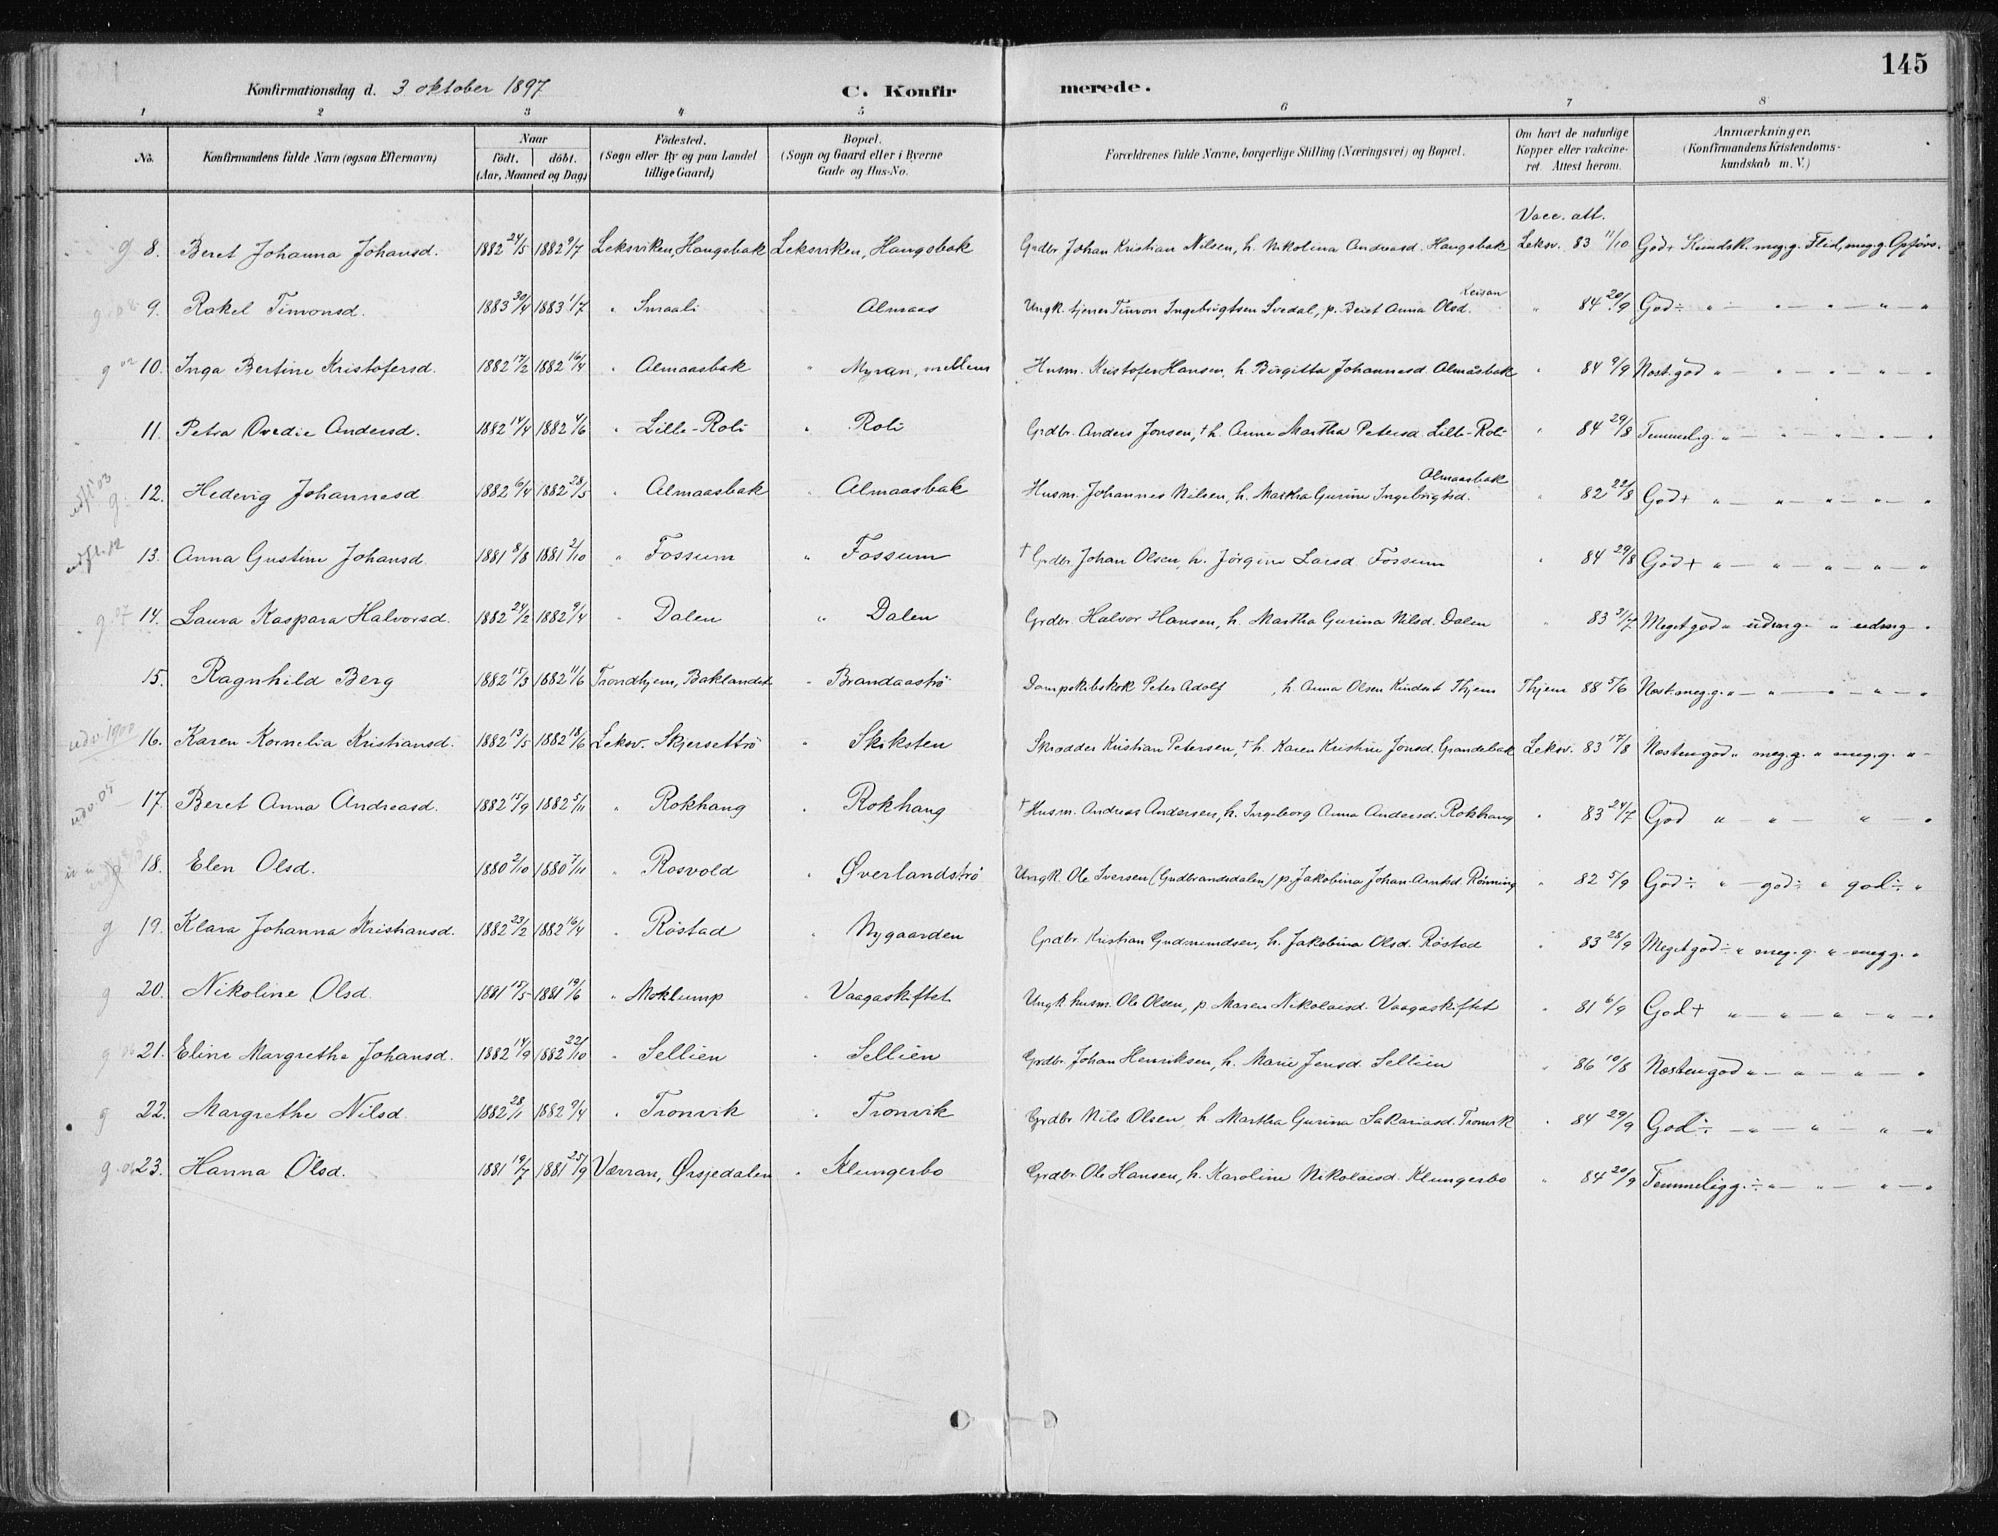 145
Konfirmationsdag d. 3 oktober 1897 C. Konfirmerede.
1 2 3 4 5 6 7 8
No. Konfirmandens fulde Navn (ogsaa Efternavn) Naar født. døbt. (Aar, Maaned og Dag) Fødested. (Sogn eller By og paa Landet tillige Gaard) Bopæl. (Sogn og Gaard eller i Byerne Gade og Hus-No. Forældrenes fulde Navne, borgerlige Stilling (Næringsvei) og Bopæl. Om havt de naturlige Kopper eller vakcineret. Attest herom. Anmærkninger. (Konfirmandens Kristendomskundskab m. V.)
Vacc. att.
g 8. Beret Johanna Johansd. 1882 24/5 1882 9/7 Leksviken, Haugsbak Leksviken, Haugsbak Grdbr Johan Kristian Nilsen, h. Nikolina Andreasd. Haugsbak Leksv. 83 11/10 God+ Kundsk. meg.g. Flid, meg.g. Opførs.
9. Rakel Timonsd. 1883 30/4 1883 1/7 " Smaali " Almaas Ungk. tjener Timon Ingebrigtsen Svedal, p. Beret Anna Olsd. " 84 20/9 God÷ " — " — " — " — "
g 02 10. Inga Bertine Kristofersd. 1882 17/2 1882 16/4 " Almaasbak " Myran, mellem Husm. Kristofer Hansen, h. Birgitta Johannesd. Almåsbak " 84 9/9 Næst.god " — " — " — " — "
11. Petra Ovedie Andersd. 1882 14/4 1882 4/6 " Lille-Roli " Roli Grdbr. Anders Jonsen, † h. Anne Martha Petersd. Lille-Roli " 84 29/8 Temmel.g. " — " — " — " — "
udfl 03 g. 12. Hedevig Johannesd 1882 6/4 1882 28/5 " Almaasbak " Almaasbak Husm. Johannes Nilsen, h. Martha Gurine Ingebrigtsd. Almaasbak " 82 22/8 God+ " — " — " — " — "
udfl. 12 13. Anna Gustine Johansd 1881 8/8 1881 2/10 " Fossum " Fossum † Grdbr Johan Olsen, h. Jørgine Larsd Fossum " 84 29/8 God+ " — " — " — " — "
g. 07 14. Laura Kaspara Halvorsd. 1882 24/2 1882 9/4 " Dalen " Dalen Grdbr. Halvor Hansen, h. Martha Gurina Nilsd. Dalen " 83 3/7 Meget god " udmrg. " udmrg "
15. Ragnhild Berg 1882 15/3 1882 11/6 Trondhjem, Baklandet " Brandaastrø Dampskibskok Peter Adolf , h. Anna Olsen Kindset Thjem Thjem 88 5/6 Næst.meg.g. " — " — " — " — "
udv. 1900 16. Karen Kornelia Kristiansd. 1882 13/5 1882 18/6 Leksv. Skjersettrø " Skiksten Skrædder Kristian Petersen, † h. Karen Kristine Jonsd. Grandebak Leksv. 83 17/8 Næstengod " meg.g. " meg.g. " —
udv. 05 17. Beret Anna Andreasd. 1882 15/9 1882 5/11 " Rokhaug " Rokhaug † Husm. Andreas Andersen, h. Ingeborg Anna Andersd. Rokhaug " 83 24/7 God " — " — " — "
18. Elen Olsd. 1880 2/10 1880 7/11 " Rosvold " Øverlandstrø Ungk. Ole Iversen (Gudbrandsdalen) p. Jakobina Johan-Arntsd. Rønning " 82 5/9 God÷ " — god÷ " god÷ "
g 19. Klara Johanna Kristiansd. 1882 23/2 1882 16/4 " Røstad " Nygaarden Grdbr. Kristian Gudmundsen, h. Jakobina Olsd. Røstad " 83 28/9 Meget god÷ " meg.g. " meg g. "
g 20. Nikoline Olsd. 1881 15/5 1881 19/6 " Moklump " Vaagaskiftet Ungk husm. Ole Olsen, p Maren Nikolaisd. Vaagaskiftet " 81 6/9 God+ " — " — " — " — "
g 21. Eline Margrethe Johansd. 1882 14/9 1882 22/10 " Sellien " Sellien Grdbr. Johan Henriksen, h. Marie Jensd. Sellien " 86 10/8 Næstengod " — " — " — "
g 22. Margrethe Nilsd. 1882 28/1 1882 9/4 " Tronvik " Tronvik Grdbr Nils Olsen, h Martha Gurina Sakariasd. Tronvik " 84 29/9 God÷ — " — " — " — "
g. 23. Hanna Olsd. 1881 19/7 1881 25/9 Værran, Ørsjedalen " Klungerbo Grdbr. Ole Hansen, h. Karoline Nikolaisd. Klungerbo " 84 20/9 Temmelig g.÷ " — " — " — "